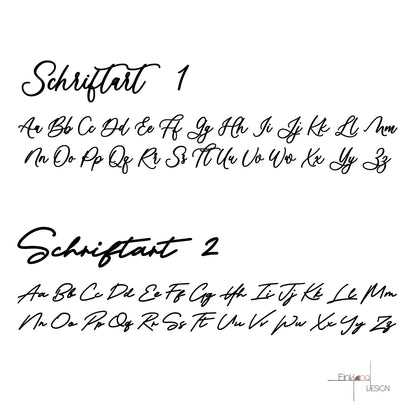 Schriftart 1
Aa Bb Cc Dd Ee Ff Gg Hh Ii Jj Kk Ll Mm
Nn Oo Pp Qq Rr Ss Tt Uu Vv Ww Xx Yy Zz
Schriftart 2
Aa Bb Cc Dd Ee Ff Gg Hh Ii Jj Kk Ll Mm
Nn Oo Pp Qq Rr Ss Tt Uu Vv Ww Xx Yy Zz
DESIGN